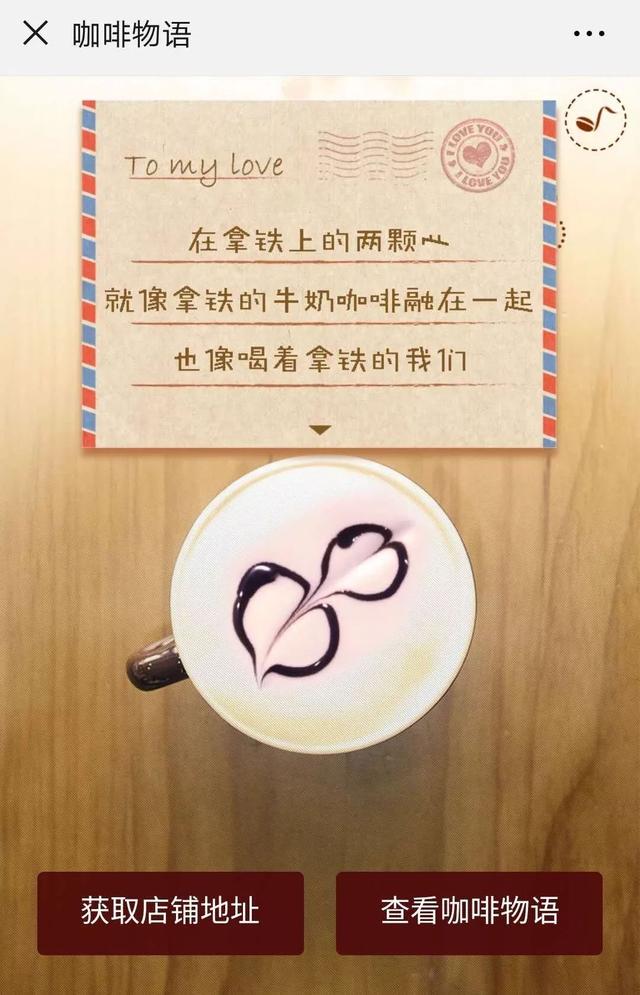 咖啡物语
To my love
I LOVE YOU
I LOVE YOU
在拿铁上的两颗心
就像拿铁的牛奶咖啡融在一起
也像喝着拿铁的我们
获取店铺地址
查看咖啡物语